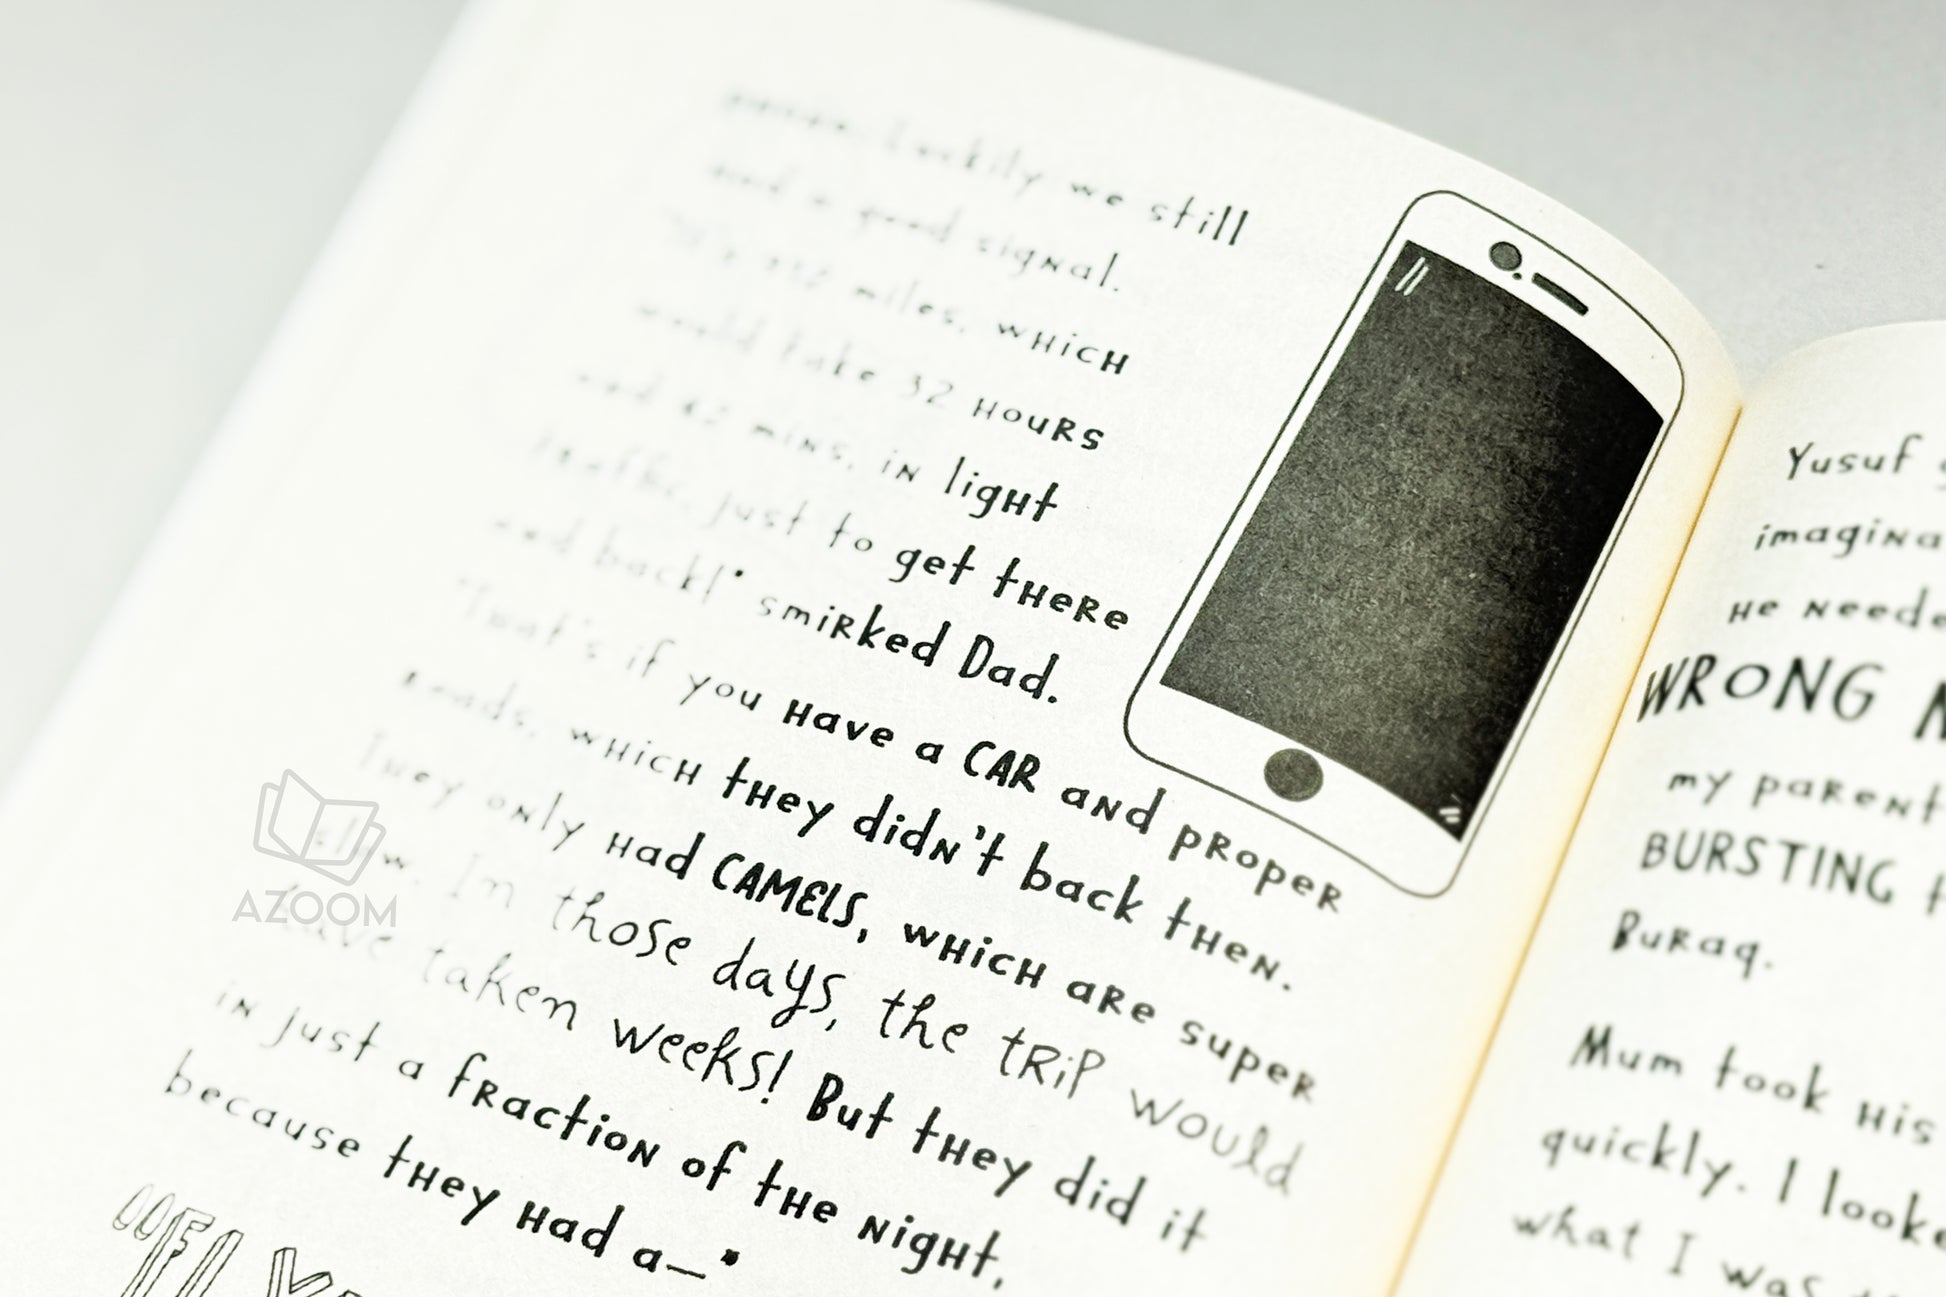 Luckily we still
and a good signal.
miles, which
would take 32 hours
and 42 mins, in light
traffic, just to get there
and back!" smirked Dad.
"That's if you have a CAR and proper
roads, which they didn't back then.
They only had CAMELS, which are super
slow. In those days, the trip would
have taken weeks! But they did it
in just a fraction of the night,
because they had a—"
"FLY
AZOOM
Yusuf
imagina
he neede
WRONG
my parent
BURSTING
Buraq.
Mum took his
quickly. I looke
what I was